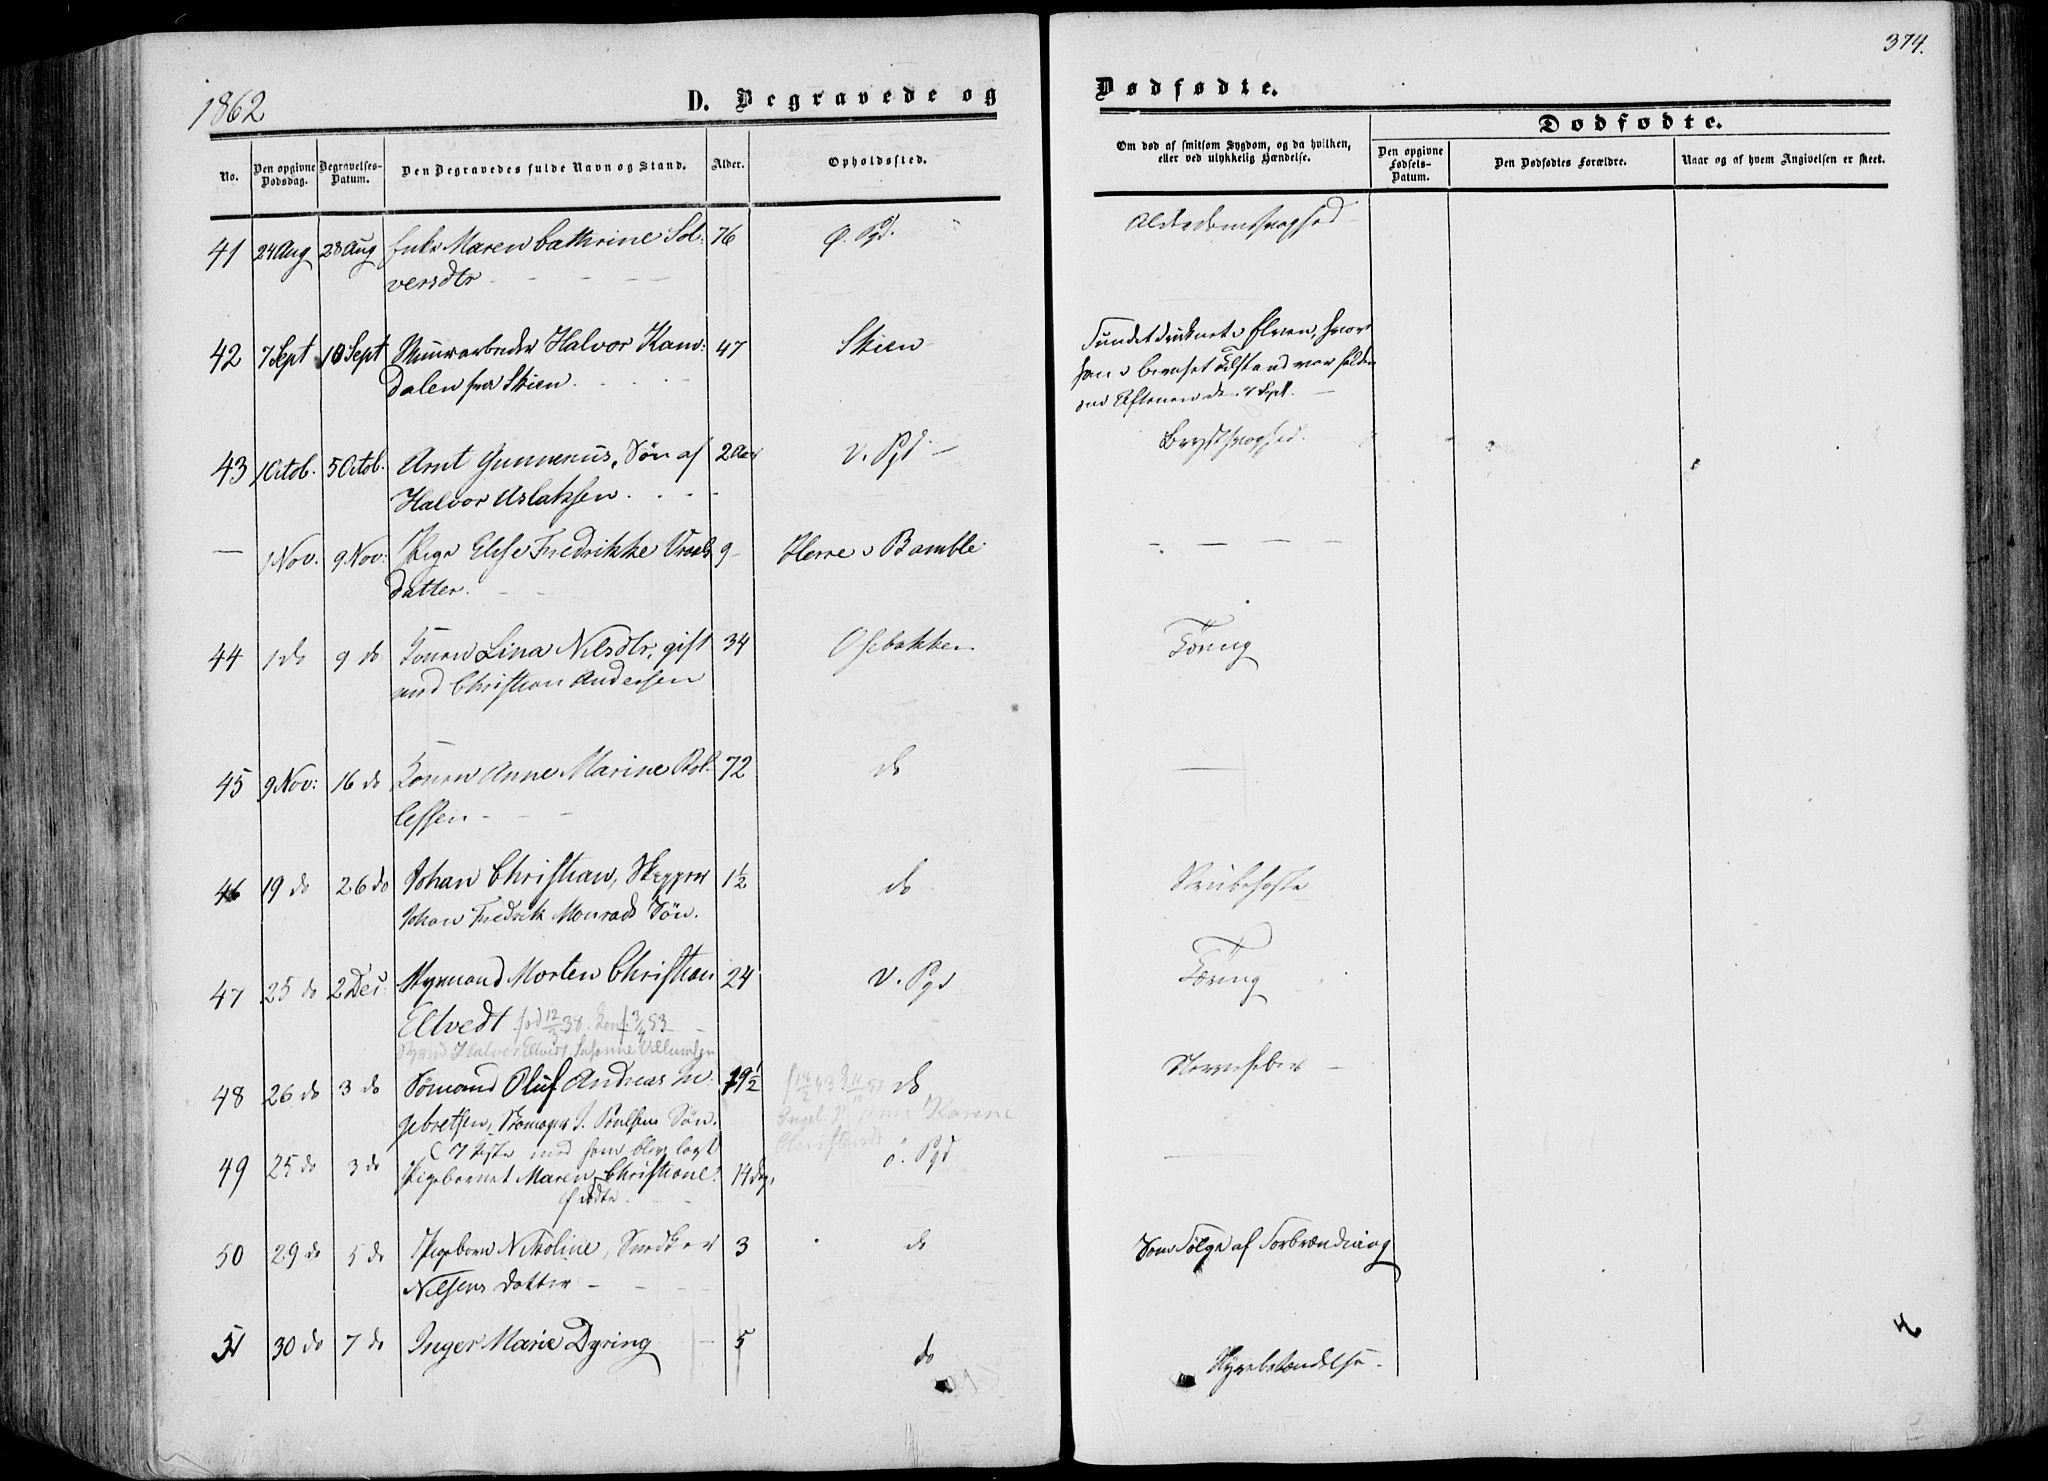 1862
D. Begravede og
Dødfødte.
374.
No.
Den opgivne Dødsdag.
Begravelses-Datum.
Den Begravedes fulde Navn og Stand.
Alder.
Opholdssted.
Om død af smitsom Sygdom, og da hvilken, eller ved ulykkelig Hændelse.
Dødfødte.
Den opgivne Fødsels-Datum.
Den Dødfødtes Forældre.
Naar og af hvem Angivelsen er skeet.
41 24 Aug 28 Aug Enke Maren Cathrine Sol- 76 Ø. Pgr. Alderdomssvaghed
versdtr
42 7 Sept 10 Sept Halvor Kam- 47 Skien Fundet druknet i Elven, hvor
dalen fra Skien.
han i beruset Tilstand var falden
om Aftenen den 7 Sept.
43 1 Octob. 5 Octob. Arnt Gunnerius, Søn af 2 Aar V. Pgd Brystsvaghed.
Halvor Aslaksen.
— 1 Nov. 9 Nov: Pige Elise Fredrikke 9 Herre i Bamble
datter.
44 1 do 9 do Konen Lina Nilsdtr, gift 34 Osebakken Tæring
med Christian Andersen
45 9 Nov: 16 do Konen Anne Marine Rol- 72 do
lefsen
46 19 do 26 do Johan Christian, Skipper 1½ do Strubehoste
Johan Fredrik Monrads Søn.
47 25 do 2 Dec: Styrmand Morten Christian 24 V. Pgd Tæring
Eltvedt fød 12/3 38. Konf. 3/4 53
Halvor Eltvedt, Susanne Villumsen
48 26 do 3 do Sømand Oluf Andreas In- 19½ do Nervefeber
gebretsen, Skomager I. Poulsens Søn.
Karine
49 25 do 3 do Pigebarnet Maren Christiane 14 Dg. ø. Pgd
I Kiste med ham blev lagt
50 29 do 5 do Pigebarn Nikoline, Snedker 3 do Som Følge af Forbrænding
Nilsens Datter
51 30 do 7 do Inger Marie Dyring 5 do